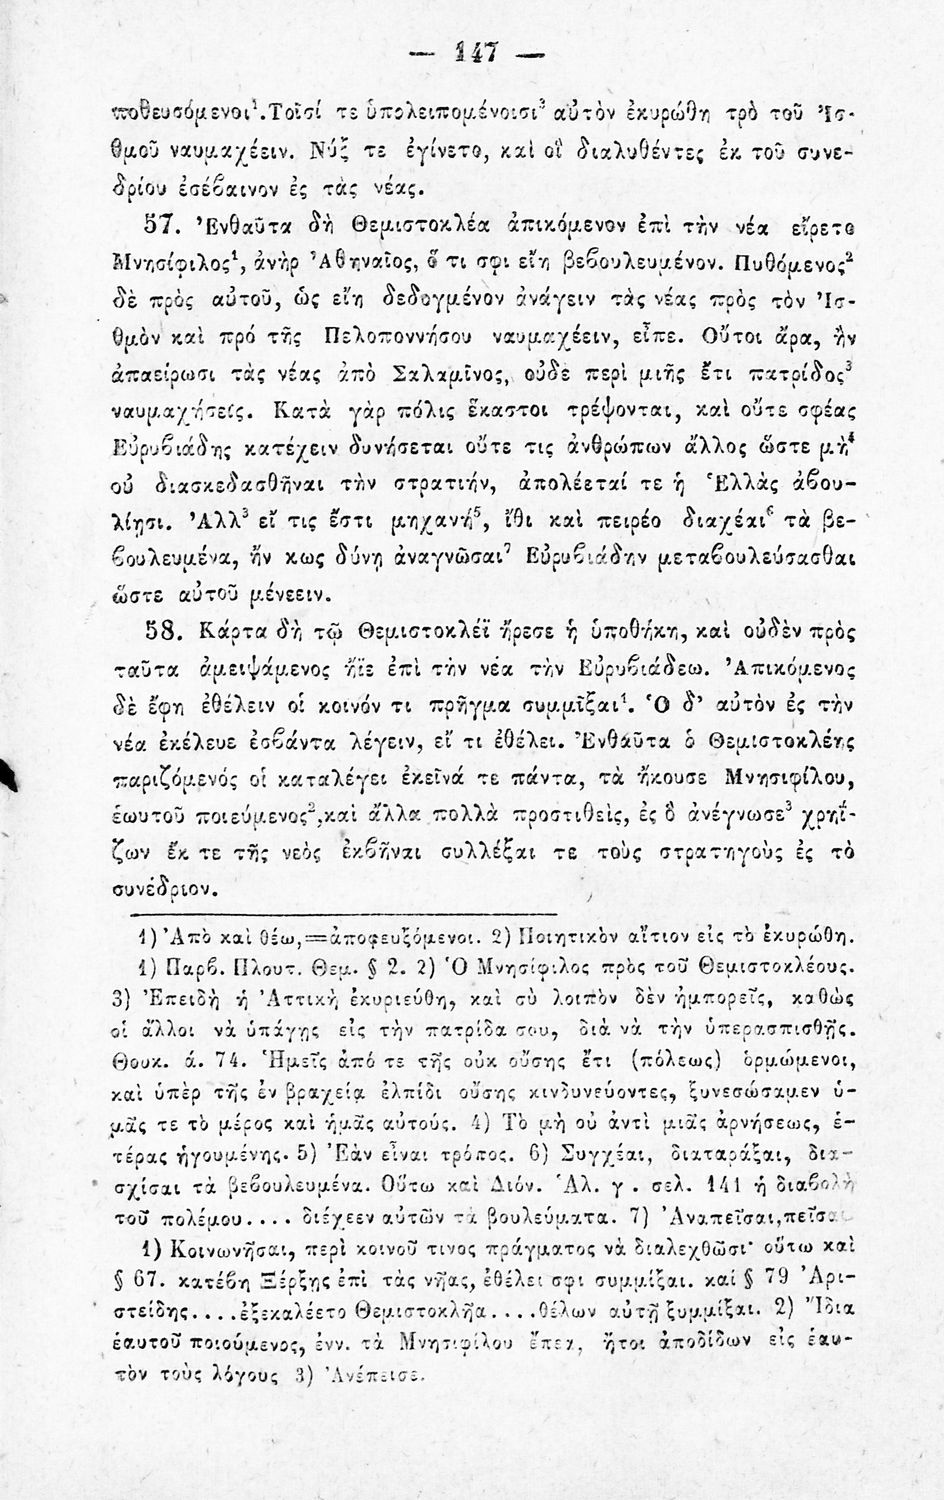 — 147 —
ποθευσόμενοι¹. Τοῖσί τε ὑπολειπομένοισι² αὐτὸν ἐκυρώθη πρὸ τοῦ Ἰσ-
θμοῦ ναυμαχέειν. Νύξ τε ἐγίνετο, καὶ οἳ διαλυθέντες ἐκ τοῦ συνε-
δρίου ἐσέβαινον ἐς τὰς νέας.
57. Ἐνθαῦτα δὴ Θεμιστοκλέα ἀπικόμενον ἐπὶ τὴν νέα εἴρετο
Μνησίφιλος¹, ἀνὴρ Ἀθηναῖος, ὅ τι σφι εἴη βεβουλευμένον. Πυθόμενος²
δὲ πρὸς αὐτοῦ, ὡς εἴη δεδογμένον ἀνάγειν τὰς νέας πρὸς τὸν Ἰσ-
θμὸν καὶ πρό τῆς Πελοποννήσου ναυμαχέειν, εἶπε. Οὔτοι ἄρα, ἢν
ἀπαείρωσι τὰς νέας ἀπὸ Σαλαμῖνος, οὐδὲ περὶ μιῆς ἔτι πατρίδος³
ναυμαχήσεις. Κατὰ γὰρ πόλις ἕκαστοι τρέψονται, καὶ οὔτε σφέας
Εὐρυβιάδης κατέχειν δυνήσεται οὔτε τις ἀνθρώπων ἄλλος ὥστε μὴ⁴
οὐ διασκεδασθῆναι τὴν στρατιήν, ἀπολέεταί τε ἡ Ἑλλὰς ἀβου-
λίῃσι. Ἀλλ' εἴ τις ἔστι μηχανή⁵, ἴθι καὶ πειρέο διαχέαι⁶ τὰ βε-
βουλευμένα, ἤν κως δύνῃ ἀναγνῶσαι⁷ Εὐρυβιάδην μεταβουλεύσασθαι
ὥστε αὐτοῦ μένεειν.
58. Κάρτα δὴ τῷ Θεμιστοκλέϊ ἤρεσε ἡ ὑποθήκη, καὶ οὐδὲν πρὸς
ταῦτα ἀμειψάμενος ἤϊε ἐπὶ τὴν νέα τὴν Εὐρυβιάδεω. Ἀπικόμενος
δὲ ἔφη ἐθέλειν οἱ κοινόν τι πρῆγμα συμμῖξαι¹. Ὁ δ' αὐτὸν ἐς τὴν
νέα ἐκέλευε ἐσβάντα λέγειν, εἴ τι ἐθέλει. Ἐνθαῦτα ὁ Θεμιστοκλέης
παριζόμενός οἱ καταλέγει ἐκεῖνά τε πάντα, τὰ ἤκουσε Μνησιφίλου,
ἑωυτοῦ ποιεύμενος², καὶ ἄλλα πολλὰ προστιθεὶς, ἐς ὃ ἀνέγνωσε³ χρηΐ-
ζων ἔκ τε τῆς νεὸς ἐκβῆναι συλλέξαι τε τοὺς στρατηγοὺς ἐς τὸ
συνέδριον.
1) Ἀπὸ καὶ θέω,=ἀποφευξόμενοι. 2) Ποιητικὸν αἴτιον εἰς τὸ ἐκυρώθη.
1) Παρβ. Πλουτ. Θεμ. § 2. 2) Ὁ Μνησίφιλος πρὸς τοῦ Θεμιστοκλέους.
3) Ἐπειδὴ ἡ Ἀττικὴ ἐκυριεύθη, καὶ σὺ λοιπὸν δὲν ἠμπορεῖς, καθὼς
οἱ ἄλλοι νὰ ὑπάγῃς εἰς τὴν πατρίδα σου, διὰ νὰ τὴν ὑπερασπισθῇς.
Θουκ. ά. 74. Ἡμεῖς ἀπό τε τῆς οὐκ οὔσης ἔτι (πόλεως) ὁρμώμενοι,
καὶ ὑπὲρ τῆς ἐν βραχείᾳ ἐλπίδι οὔσης κινδυνεύοντες, ξυνεσώσαμεν ὑ-
μᾶς τε τὸ μέρος καὶ ἡμᾶς αὐτούς. 4) Τὸ μὴ οὐ ἀντὶ μιᾶς ἀρνήσεως, ἑ-
τέρας ἡγουμένης. 5) Ἐὰν εἶναι τρόπος. 6) Συγχέαι, διαταράξαι, δια-
σχίσαι τὰ βεβουλευμένα. Οὕτω καὶ Διόν. Ἁλ. γ. σελ. 141 ἡ διαβολὴ
τοῦ πολέμου.... διέχεεν αὐτῶν τὰ βουλεύματα. 7) Ἀναπεῖσαι, πεῖσαι
1) Κοινωνῆσαι, περὶ κοινοῦ τινος πράγματος νὰ διαλεχθῶσι· οὕτω καὶ
§ 67. κατέβη Ξέρξης ἐπὶ τὰς νῆας, ἐθέλει σφι συμμίξαι. καί § 79 Ἀρι-
στείδης....ἐξεκαλέετο Θεμιστοκλῆα....θέλων αὐτῇ ξυμμίξαι. 2) Ἴδια
ἑαυτοῦ ποιούμενος, ἐνν. τὰ Μνησιφίλου ἔπεα, ἤτοι ἀποδίδων εἰς ἑαυ-
τὸν τοὺς λόγους 3) Ἀνέπεισε.